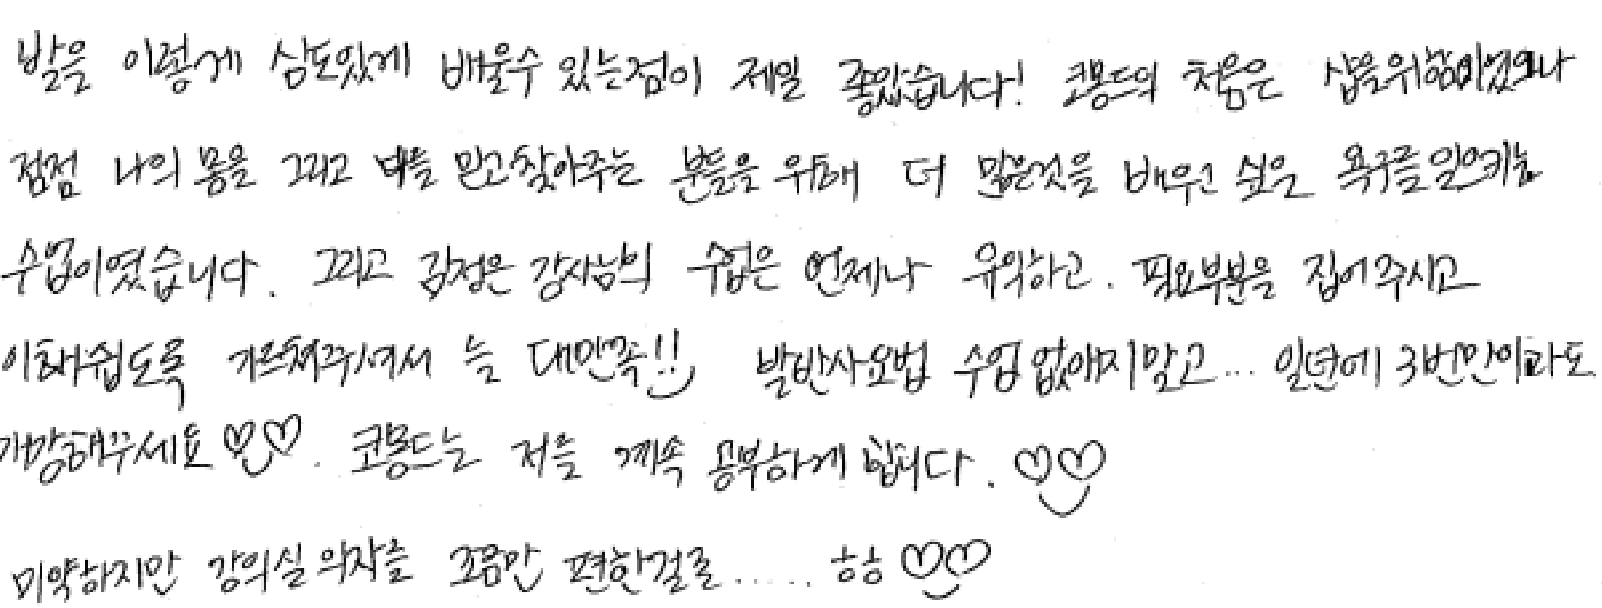 발을 이렇게 심도있게 배울수 있는점이 제일 좋았습니다! 코몽드의 처음은 샵을위함이었으나
점점 나의 몸을 그리고 나를 믿고찾아주는 분들을 위해 더 많은것을 배우고 싶은 욕구를 일으키는
수업이였습니다. 그리고 김정은 강사님의 수업은 언제나 유익하고. 필요부분을 집어주시고
이해쉽도록 가르쳐주셔서 늘 대만족!! 발반사요법 수업 없애지말고... 일년에 3번만이라도
개강해주세요 ♡♡. 코몽드는 저를 계속 공부하게 합니다. ♡♡
미약하지만 강의실 의자를 조금만 편한걸로...... ㅎㅎ ♡♡